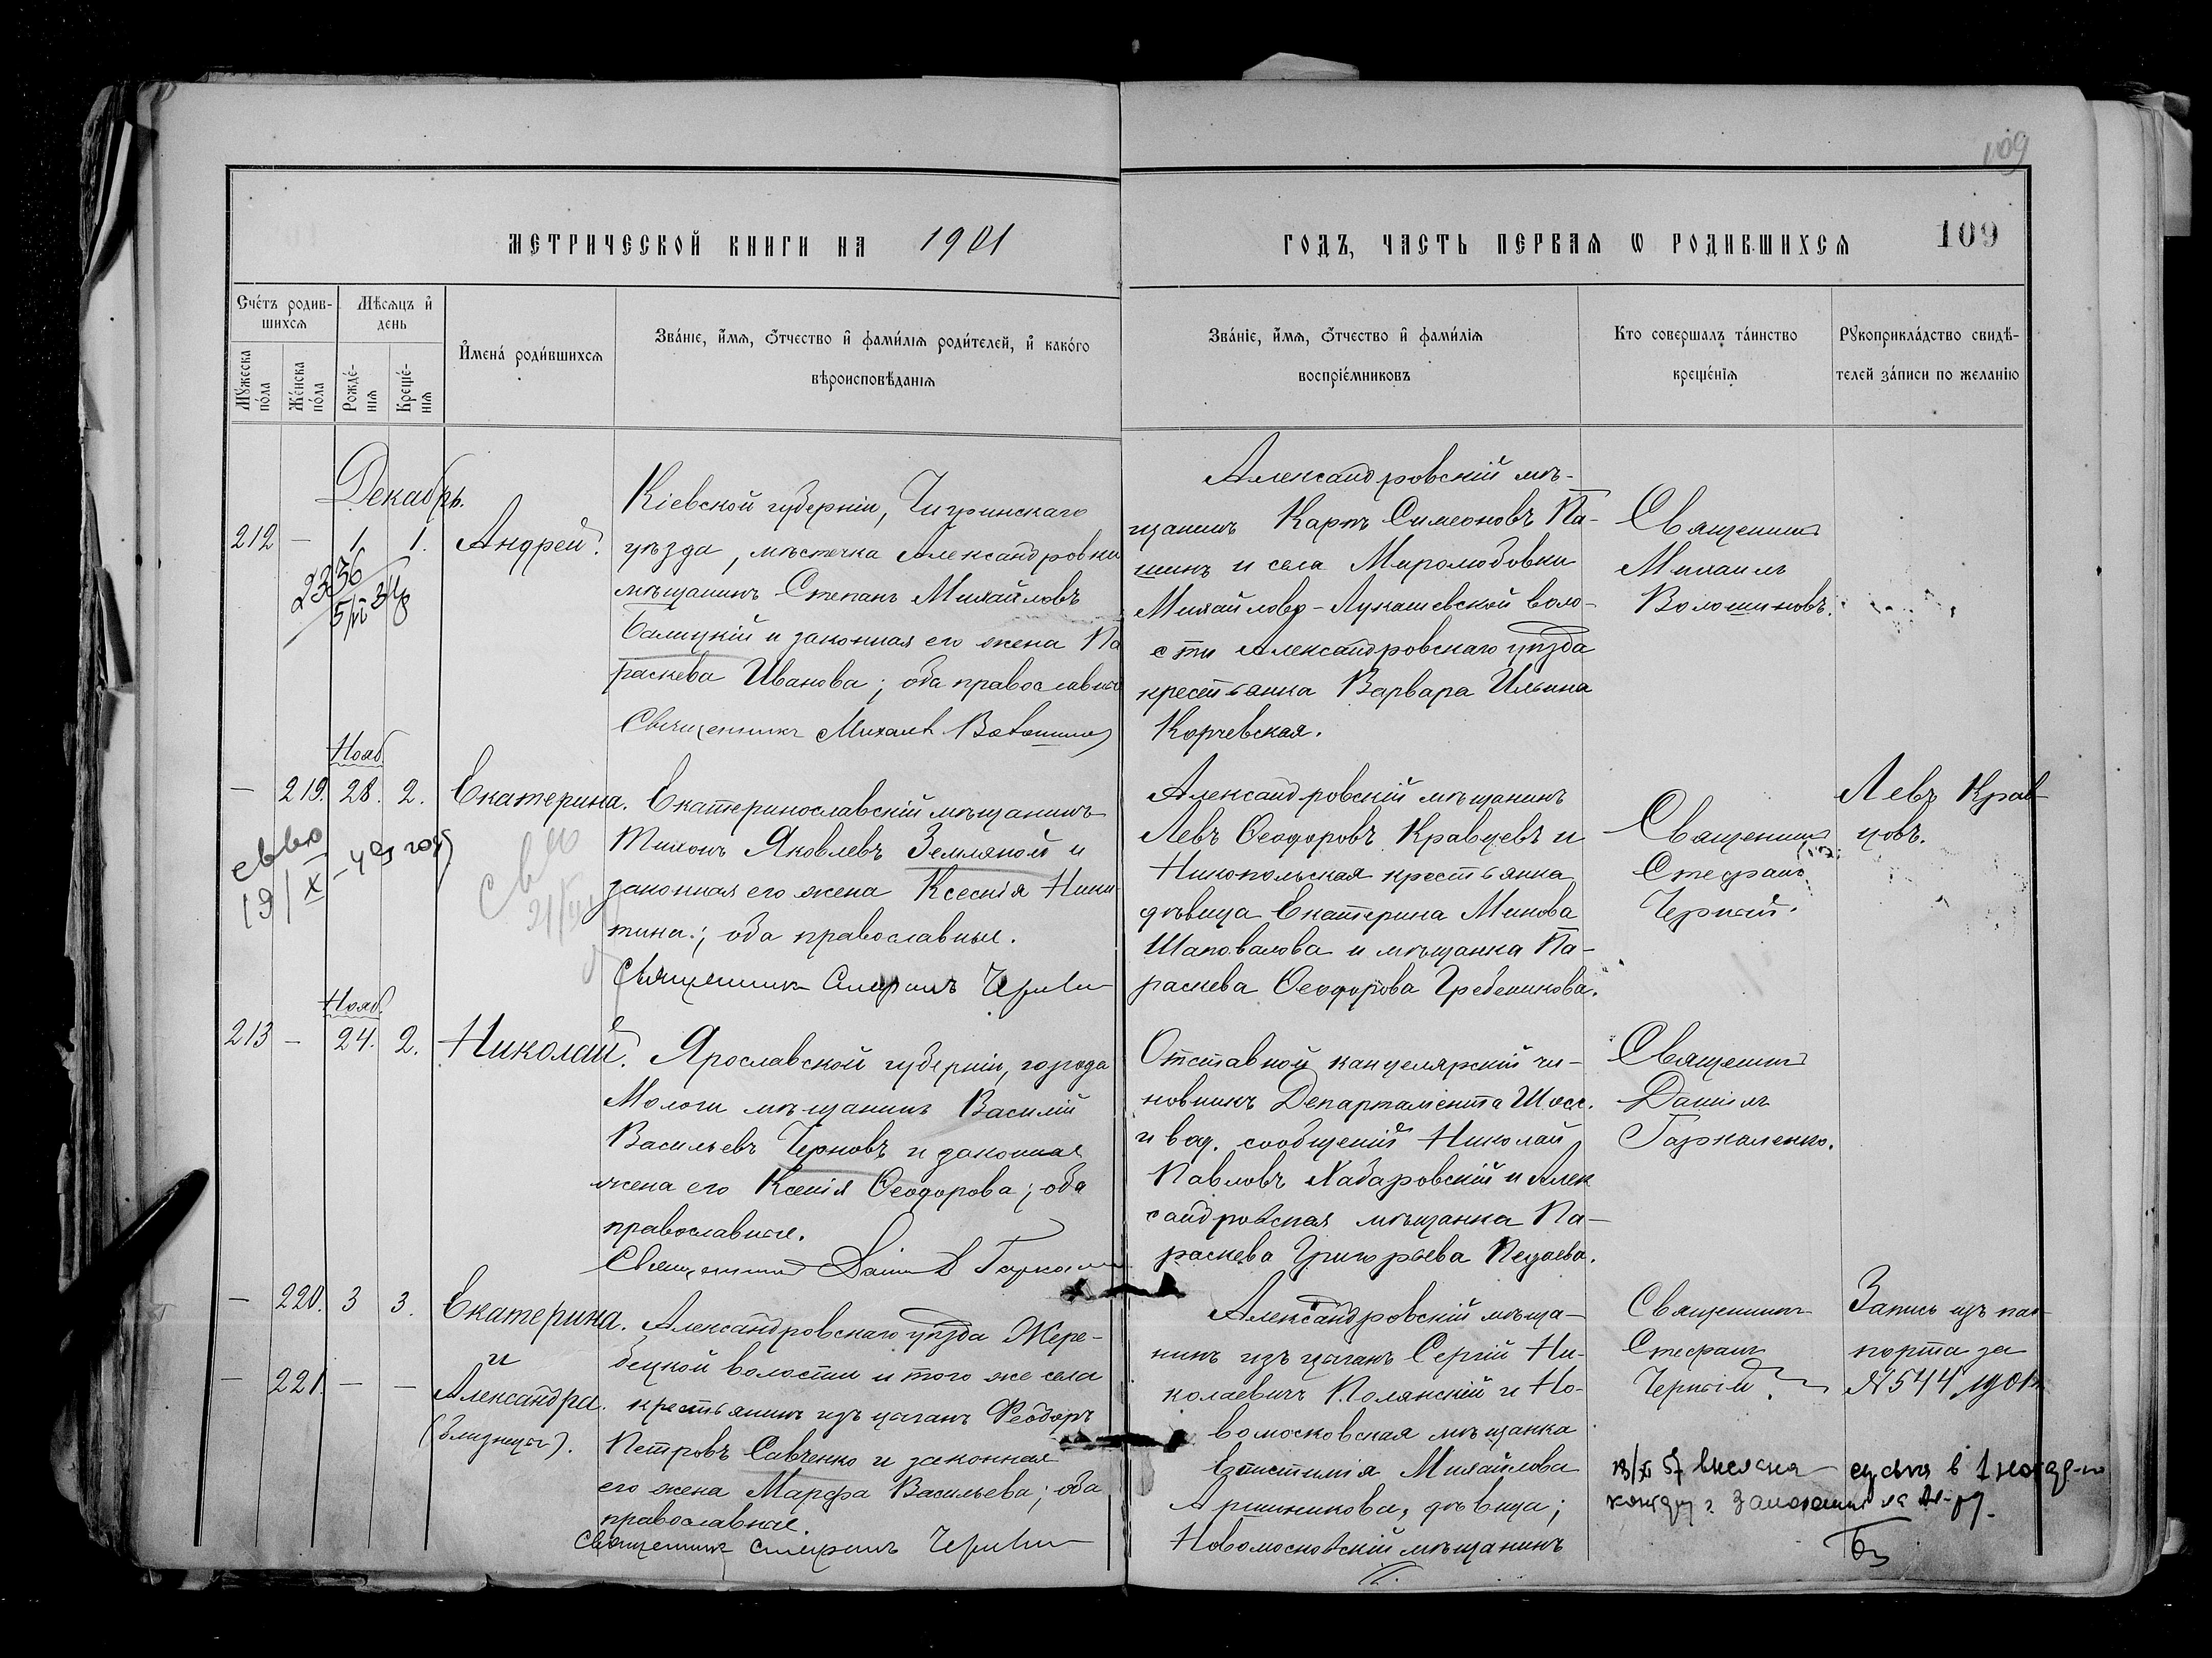 109
МЕТРИЧЕСКОЙ КНИГИ НА 1901
ГОДЪ, ЧАСТЬ ПЕРВАЯ Ѡ РОДИВШИХСЯ 109
Счетъ родив-
шихся
Мѣсяцъ и
день
Мужеска
пола
Женска
пола
Рожде-
нія
Креще-
нія
Имена родившихся
Званіе, имя, отчество и фамилія родителей, и какого
вѣроисповѣданія
Званіе, имя, отчество и фамилія
воспріемниковъ
Кто совершалъ таинство
крещенія
Рукоприкладство свидѣ-
телей записи по желанію
Декабрь.
212 — 1. 1. Андрей.
2336
Кіевской губерніи, Чигринскаго
уѣзда, мѣстечка Александровки
мѣщанинъ Степанъ Михайловъ
Балицкій и законная его жена Па
раскева Иванова; оба православные
Священникъ Михаилъ Волошинов
Александровскій мѣ-
щанинъ Карпъ Симеоновъ Па-
шинъ и села Миролюбовки
Михайлово-Лукашевской воло-
сти Александровскаго уѣзда
крестьянка Варвара Ильина
Корчевская.
Священникъ
Михаилъ
Волошиновъ.
Нояб.
— 219. 28. 2. Екатерина.
Екатеринославскій мѣщанинъ
Тихонъ Яковлевъ Земляной и
законная его жена Ксенія Ники-
тина; оба православные.
Священникъ Стефанъ Черний
Александровскій мѣщанинъ
Левъ Ѳеодоровъ Кравцевъ и
Никопольская крестьянка
дѣвица Екатерина Минова
Шаповалова и мѣщанка Па-
раскева Ѳеодорова Гребеникова.
Священникъ
Стефанъ
Черний.
Левъ Крав-
цовъ.
19/X
Нояб.
213 — 24. 2. Николай.
Ярославской губерніи, города
Мологи мѣщанинъ Василій
Васильевъ Черновъ и законная
жена его Ксенія Ѳеодорова; оба
православные.
Священникъ Даніилъ
Отставной канцелярскій чи-
новникъ Департамента Шосс.
и вод. сообщеній Николай
Павловъ Хабаровскій и Алек
сандровская мѣщанка Па-
раскева Григорьева Педаева.
Священникъ
Даніилъ
Гаркаленко.
— 220. 3 3. Екатерина.
и
— 221. — — Александра.
(близнецы).
Александровскаго уѣзда Жере-
бецкой волости и того же села
крестьянинъ изъ цыганъ Феодоръ
Петровъ Савченко и законная
его жена Марфа Васильева; оба
православные.
Священникъ Стефанъ Черний
Александровскій мѣща-
нинъ изъ цыганъ Сергій Ни-
колаевичъ Полянскій и Но-
вомосковская мѣщанка
Евпистимія Михайлова
Аршинникова, дѣвица;
Новомосковскій мѣщанинъ
Священникъ
Стефанъ
Черній.
Запись изъ пас-
порта за
№544